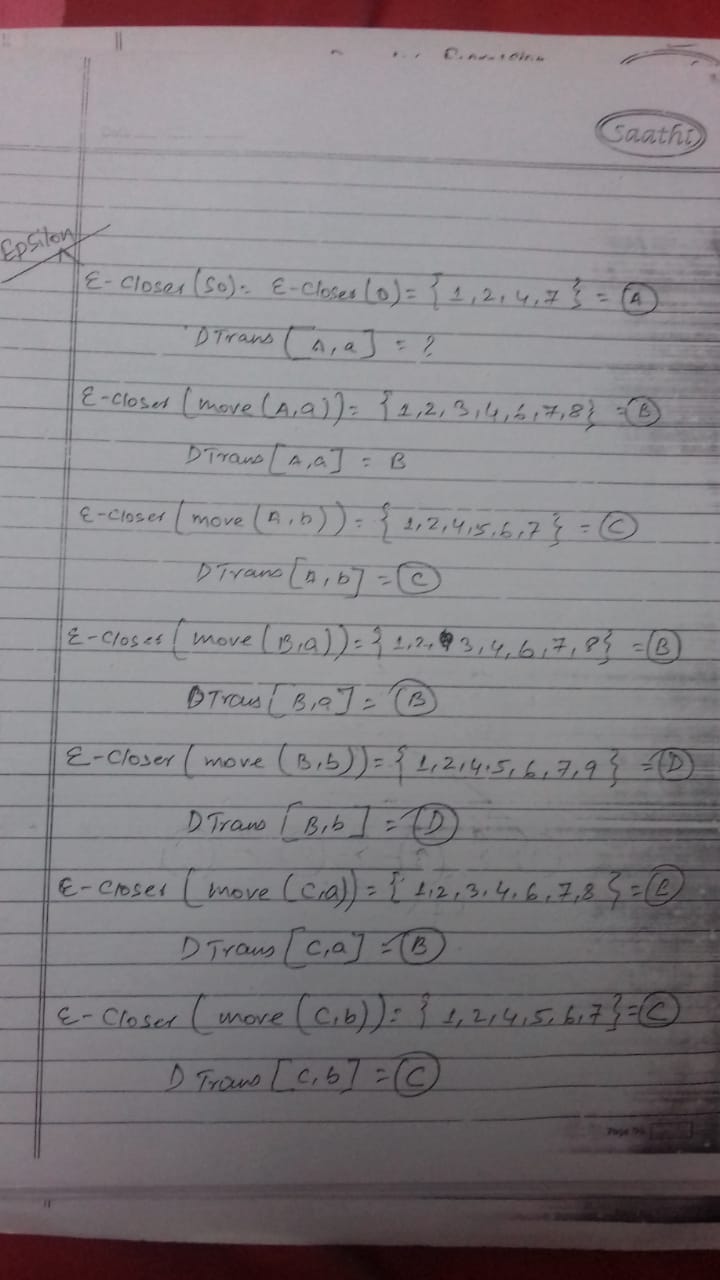 Saathi
Epsilon
ε-Closer (S0) = ε-Closer (0) = { 1, 2, 4, 7 } = A
DTrans [ A, a ] = ?
ε-Closer ( move (A, a)) = { 1, 2, 3, 4, 6, 7, 8 } = B
DTrans [ A, a ] = B
ε-Closer ( move (A, b)) = { 1, 2, 4, 5, 6, 7 } = C
DTrans [ A, b ] = C
ε-Closer ( move (B, a)) = { 1, 2, 3, 4, 6, 7, 8 } = B
DTrans [ B, a ] = B
ε-Closer ( move (B, b)) = { 1, 2, 4, 5, 6, 7, 9 } = D
DTrans [ B, b ] = D
ε-Closer ( move (C, a)) = { 1, 2, 3, 4, 6, 7, 8 } = B
DTrans [ C, a ] = B
ε-Closer ( move (C, b)) = { 1, 2, 4, 5, 6, 7 } = C
D Trans [ C, b ] = C
Page No